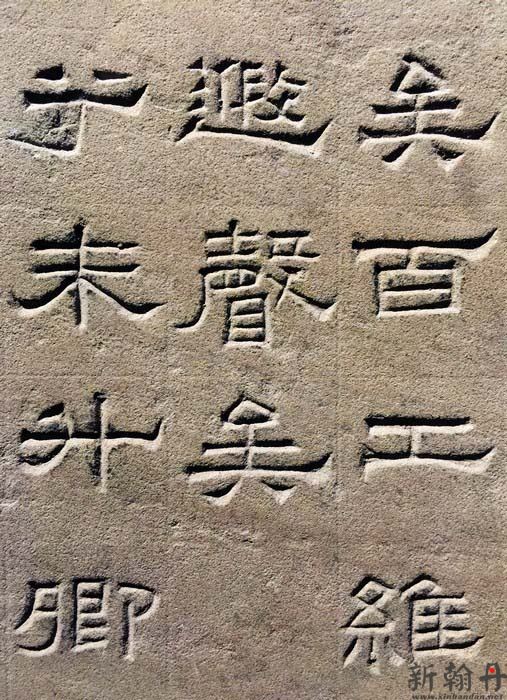 矣百工維
遐聲矣
于未升卿
新翰丹
www.xinhandan.net